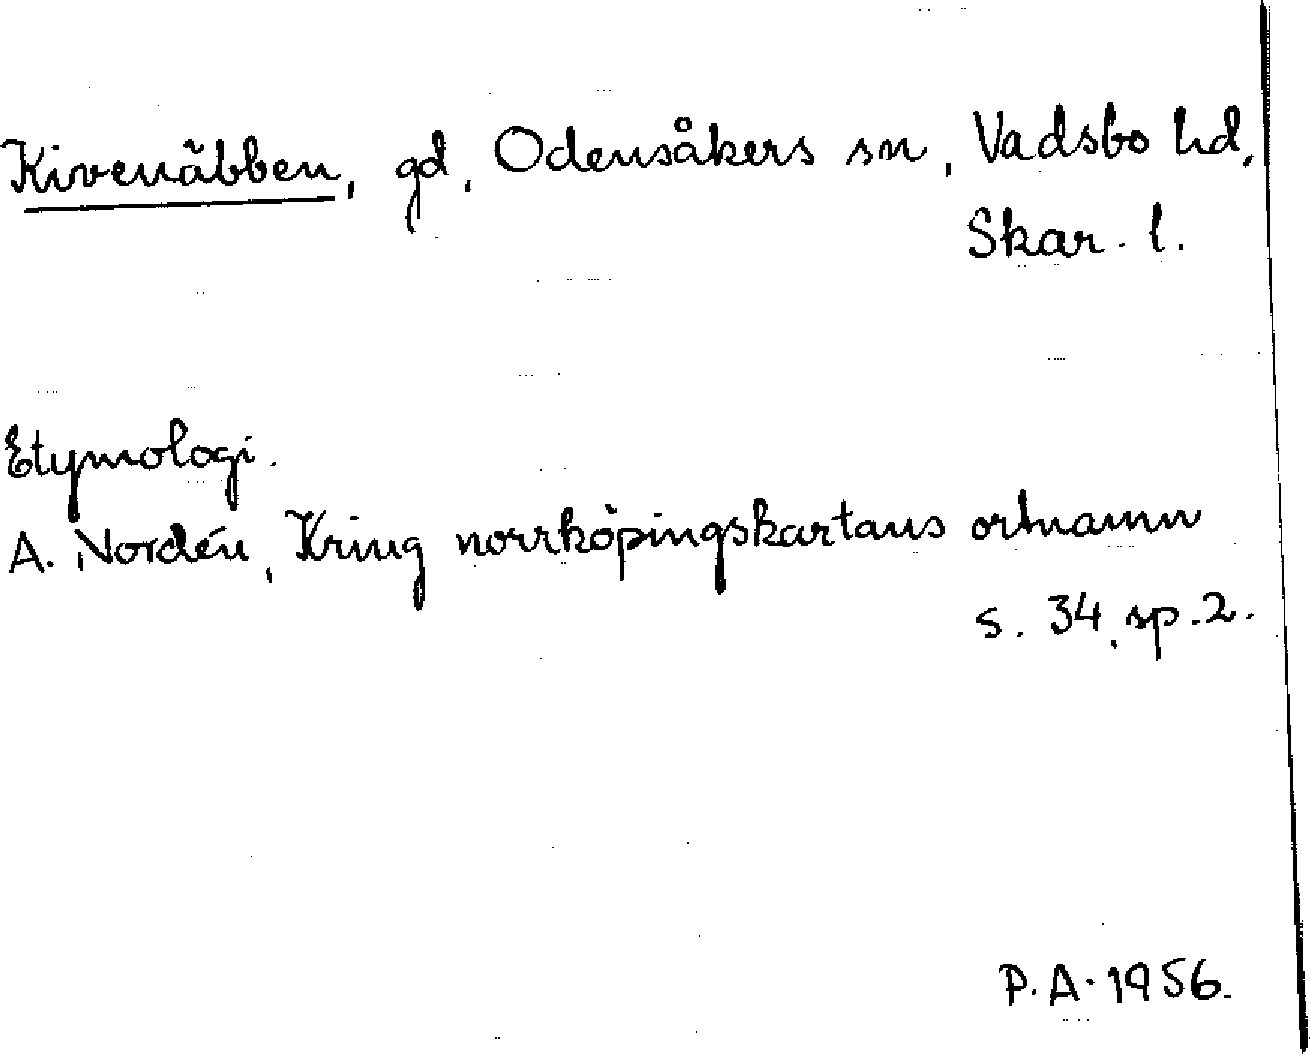 Kivenäbben, gd, Odensåkers sn, Vadsbo hd,
Skar. l.
Etymologi.
A. Nordén, Kring norrköpingskartans ortnamn
s. 34, sp. 2.
P. A. 1956.